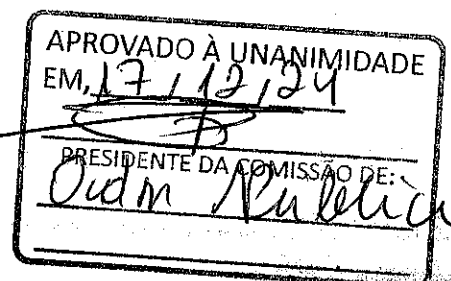 APROVADO À UNANIMIDADE
EM, 17, 12, 24
PRESIDENTE DA COMISSÃO DE:
Ordm Pública